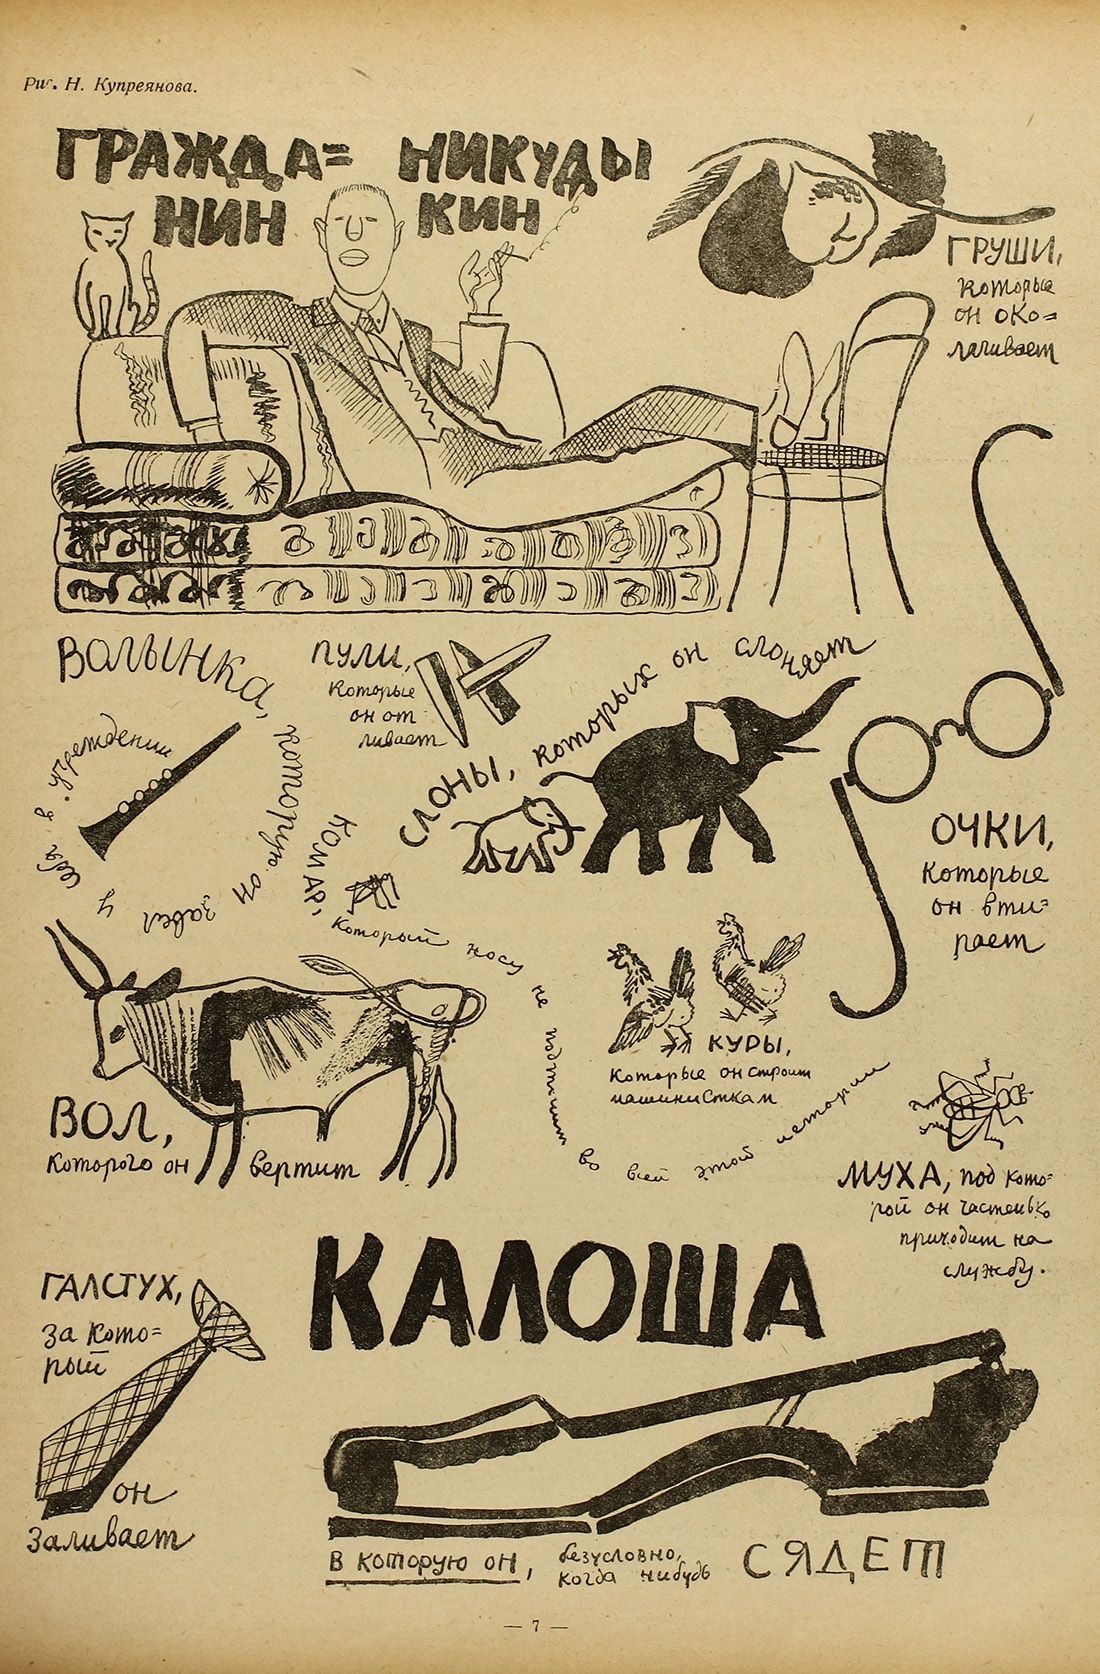 Рис. Н. Купреянова.
ГРАЖДА=
НИН
НИКУДЫ
КИН
ГРУШИ,
которые
он око=
лачивает
ВОЛЫНКА,
которую он завел у себя в учреждении
ПУЛИ,
которые
он от
ливает
СЛОНЫ, которых он слоняет
ОЧКИ,
которые
он вти=
рает
КОМАР,
который носу не подточит во всей этой истории
КУРЫ,
которые он строит
машинисткам
ВОЛ,
которого он вертит
МУХА, под кото=
рой он частенько
приходит на
службу.
ГАЛСТУХ,
за кото=
рый
он
заливает
КАЛОША
в которую он, безусловно,
когда нибудь СЯДЕТ
— 7 —